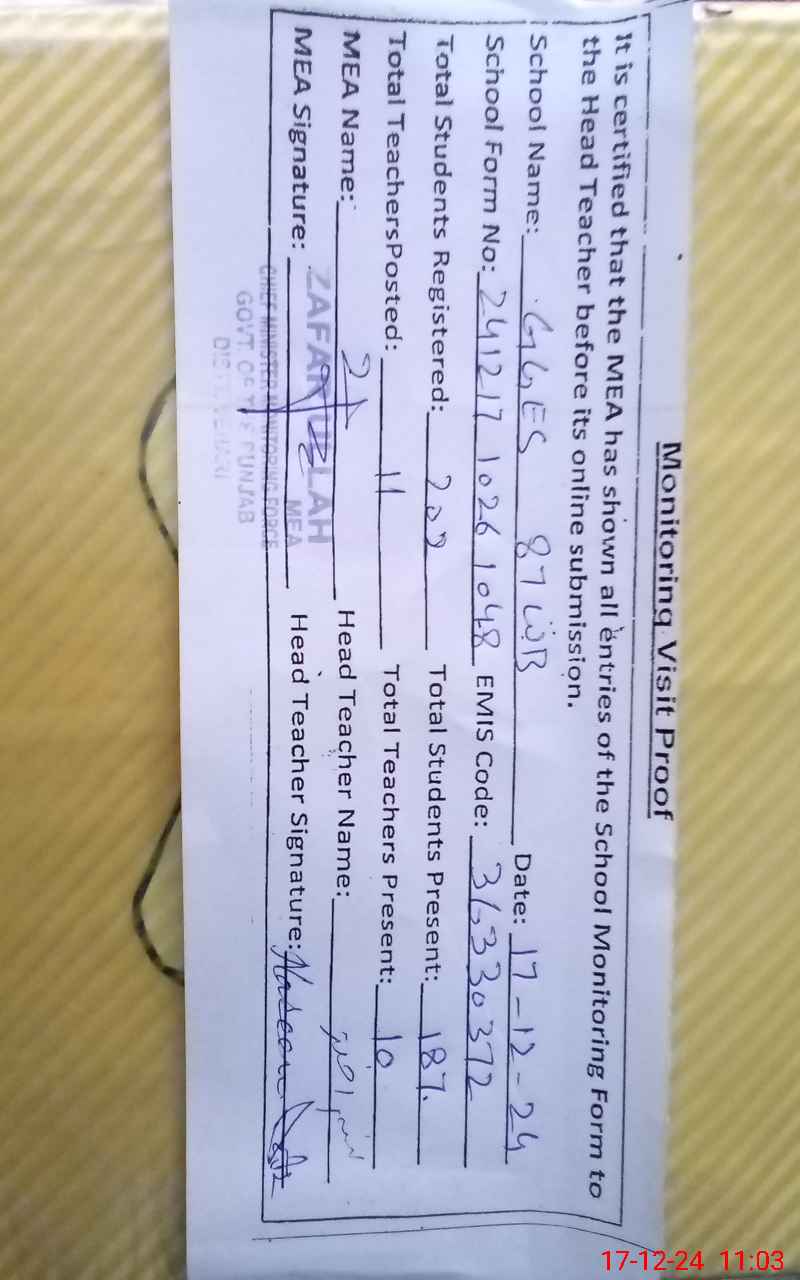 Monitoring Visit Proof
It is certified that the MEA has shown all entries of the School Monitoring Form to
the Head Teacher before its online submission.
School Name: GGES 87 WB Date: 17-12-24
School Form No: 241217 1026 1048 EMIS Code: 36330372
Total Students Registered: 202 Total Students Present: 187.
Total TeachersPosted: 11 Total Teachers Present: 10
MEA Name: Head Teacher Name: نسیم اختر
MEA Signature: Head Teacher Signature:
ZAFAR ULLAH
MEA
CHIEF MINISTER MONITORING FORCE
GOVT. OF THE PUNJAB
17-12-24 11:03